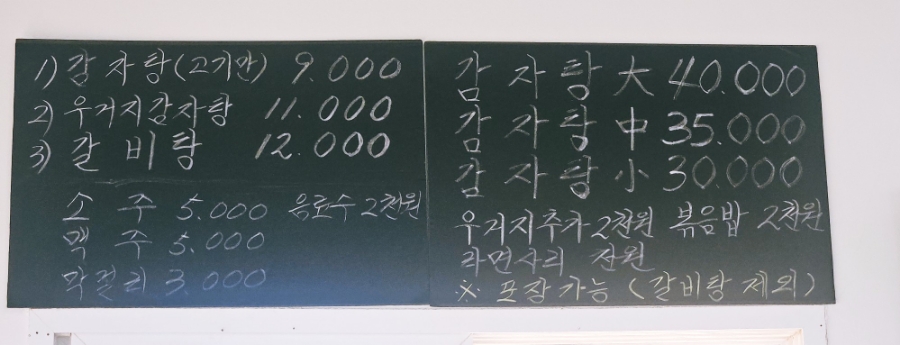 1) 감자탕(고기만) 9.000
2) 우거지감자탕 11.000
3) 갈비탕 12.000
소주 5.000 음료수 2천원
맥주 5.000
막걸리 3.000
감자탕 大 40.000
감자탕 中 35.000
감자탕 小 30.000
우거지추가 2천원 볶음밥 2천원
라면사리 천원
※ 포장가능 (갈비탕 제외)